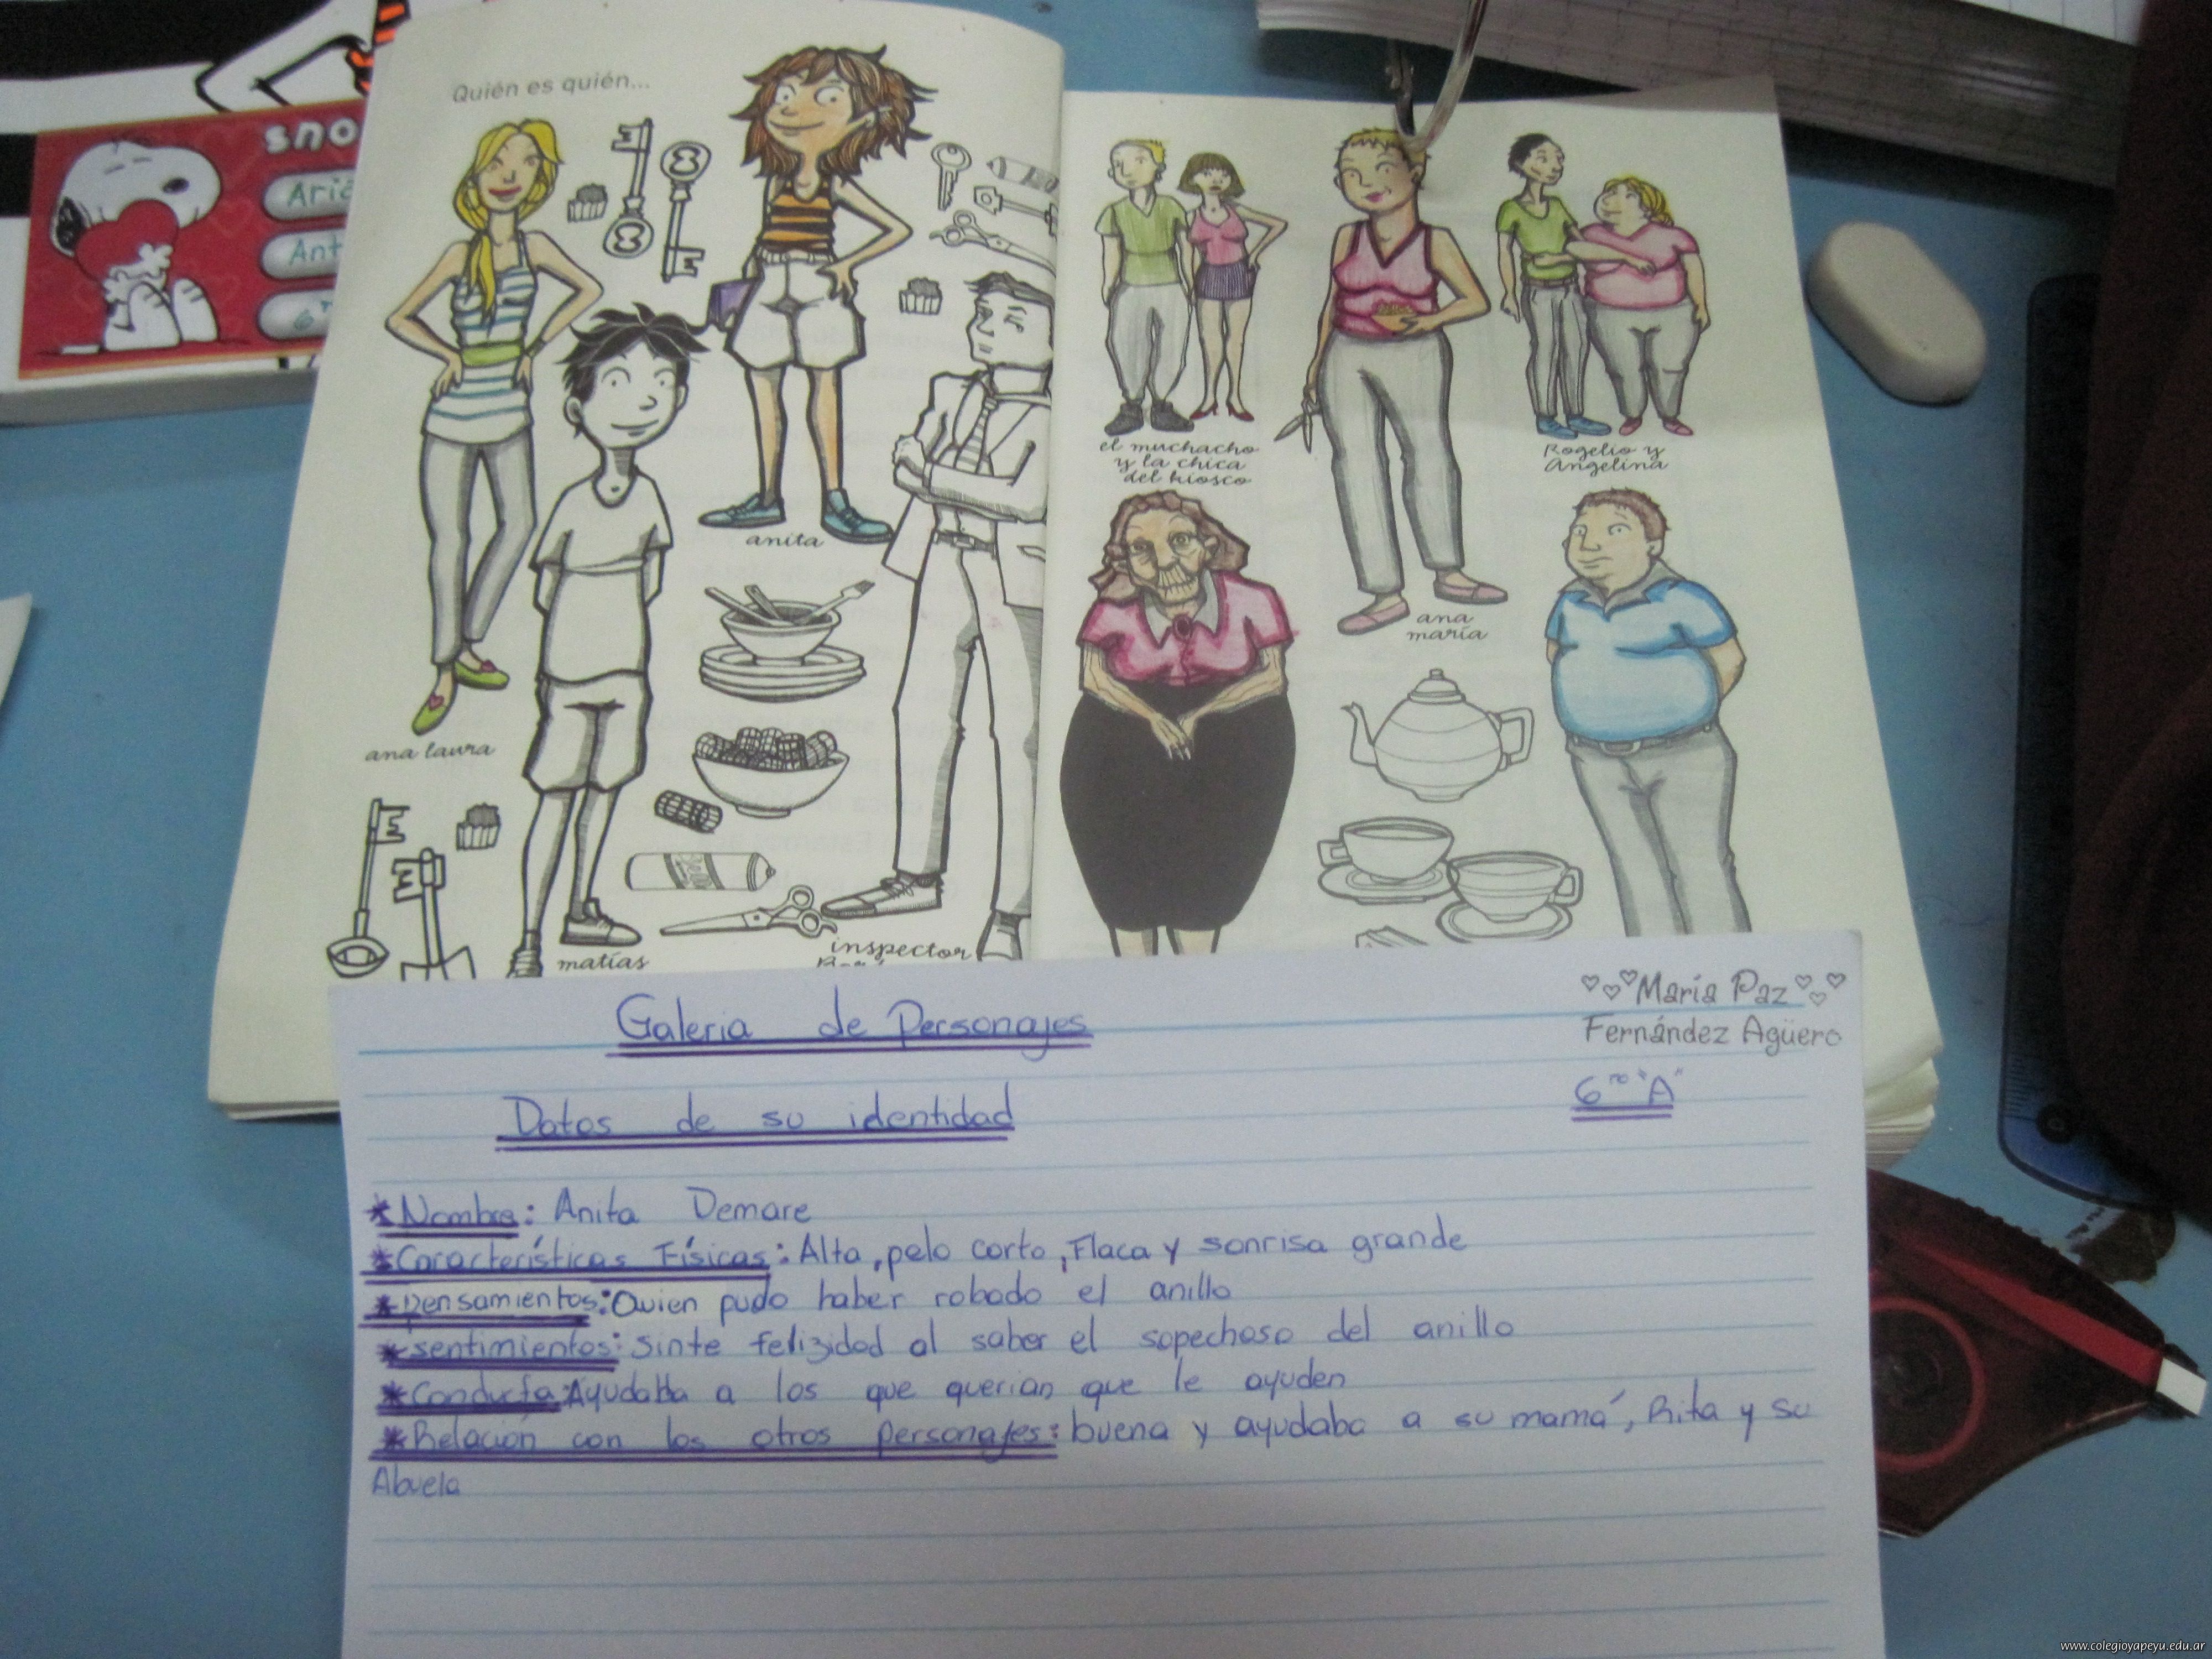 Quién es quién...
sno
Aria
Ant
6
anita
ana laura
matías
inspector
el muchacho
y la chica
del kiosco
Rogelio y
Angelina
ana
maría
María Paz
Fernández Agüero
6to "A"
Galeria de Personajes
Datos de su identidad
*Nombre: Anita Demare
*Características Físicas: Alta, pelo corto, Flaca y sonrisa grande
*Pensamientos: Quien pudo haber robado el anillo
*sentimientos: Sinte felizidad al saber el sopechoso del anillo
*Conducta: Ayudaba a los que querian que le ayuden
*Relación con los otros personajes: buena y ayudaba a su mamá, Rita y su
Abuela
www.colegioyapeyu.edu.ar